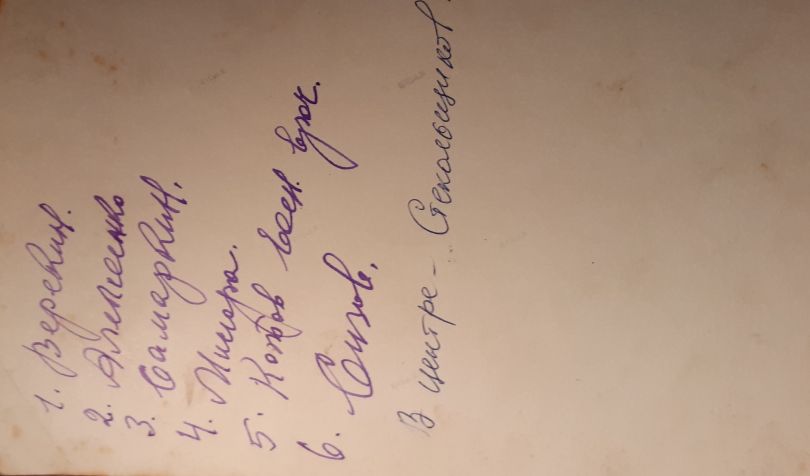 1. Веревкин.
2. Алексенко
3. Самаркин.
4. Мишара.
5. Котов воен. врач.
6. Сизов.
В центре - Стекольщиков.